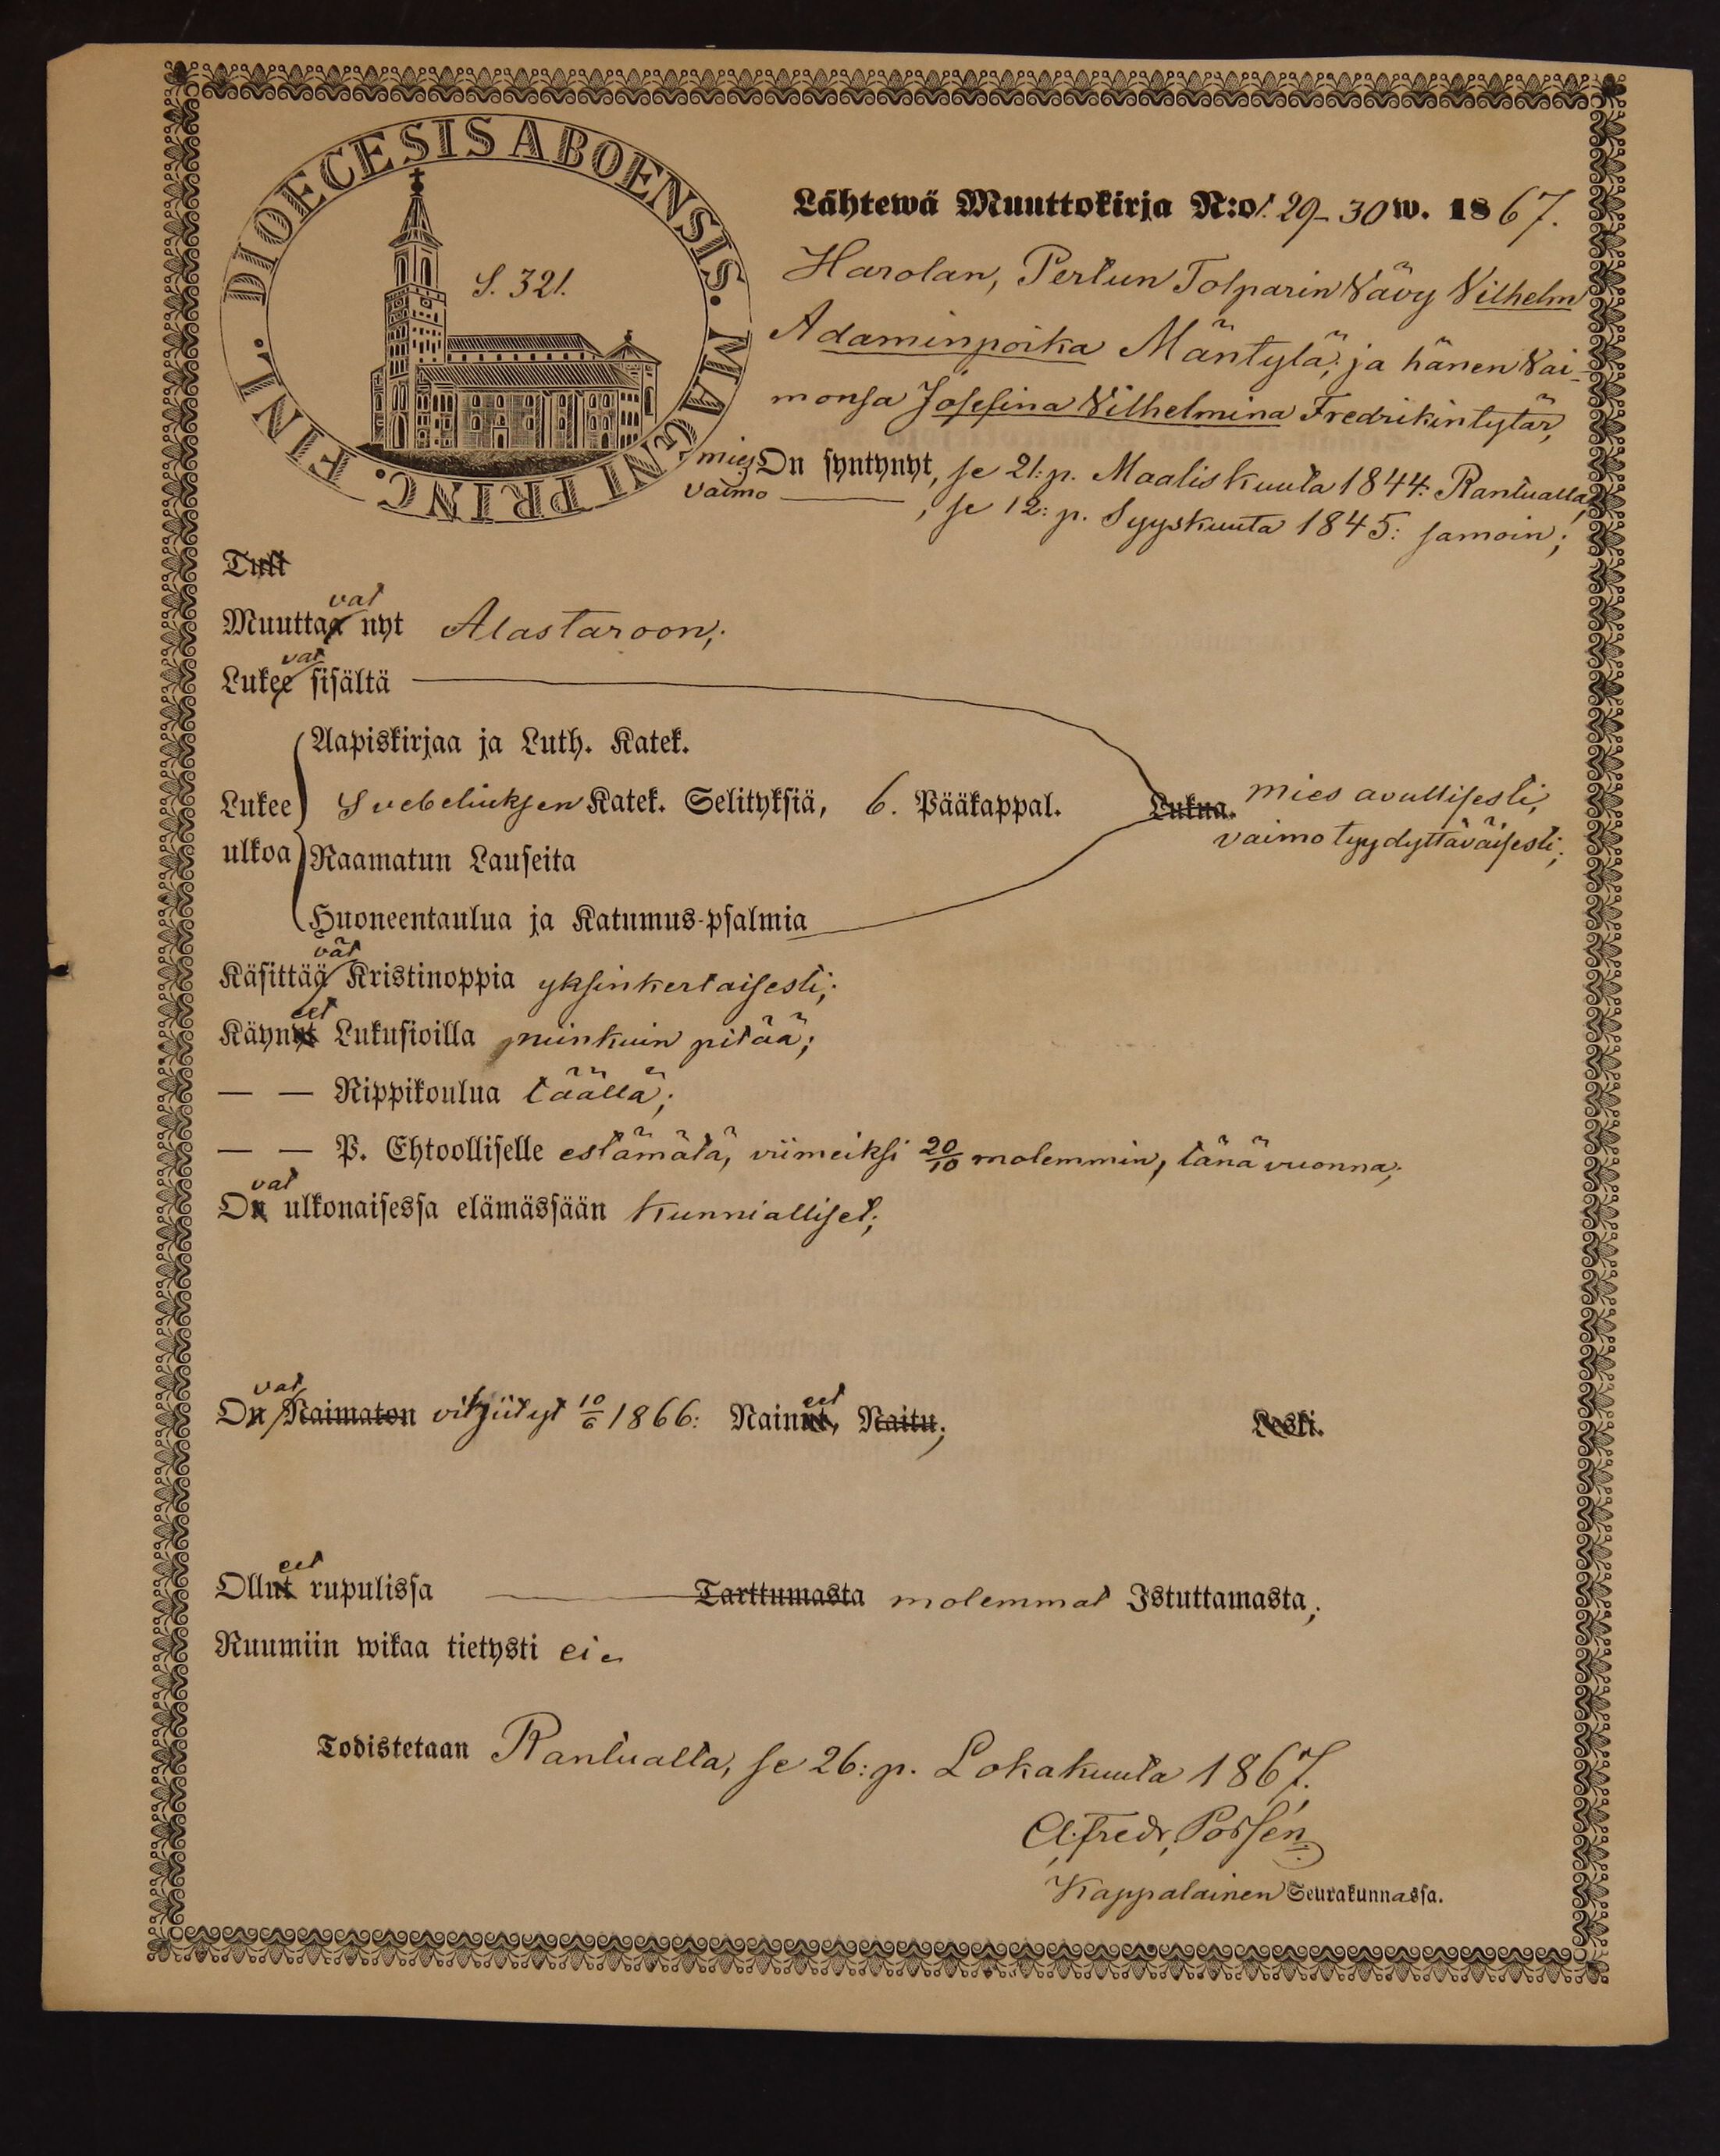 DIOECESIS ABOENSIS. MAGNI PRINC. FINL.
S. 321.
Lähtewä Muuttokirja N:o 29–30 w. 1867.
Harolan, Perlun Tolparin Vävy Vilhelm
Adaminpoika Mäntylä; ja hänen Vai-
monsa Josefina Vilhelmina Fredrikintytär,
mies On syntynyt, se 21:p. Maaliskuuta 1844: Rantualla,
vaimo ——— , se 12:p. Syyskuuta 1845: samoin;
Tuli
vat
Muuttaa nyt Alastaroon;
vat
Lukee sisältä
Aapiskirjaa ja Luth. Katek.
Lukee Svebeliuksen Katek. Selityksiä, 6. Pääkappal. Lukua. mies avullisesti,
ulkoa Raamatun Lauseita vaimo tyydyttäväisesti;
Huoneentaulua ja Katumus-psalmia
vät
Käsittää Kristinoppia yksinkertaisesti;
eet
Käynyt Lukusioilla niinkuin pitää;
— — Rippikoulua täällä;
— — P. Ehtoolliselle estämätä, viimeiksi 20/10 molemmin, tänä vuonna;
vat
On ulkonaisessa elämässään Kunnialliset;
vat eet
On Naimaton vihjiityt 10/6 1866: Nainut, Naitu; Leski.
eet
Ollut rupulissa ——— Tarttumasta molemmat Istuttamasta;
Ruumiin wikaa tietysti ei.
Todistetaan Rantualla, se 26:p. Lokakuuta 1867.
A. Fredr. Porsén
Kappalainen Seurakunnassa.